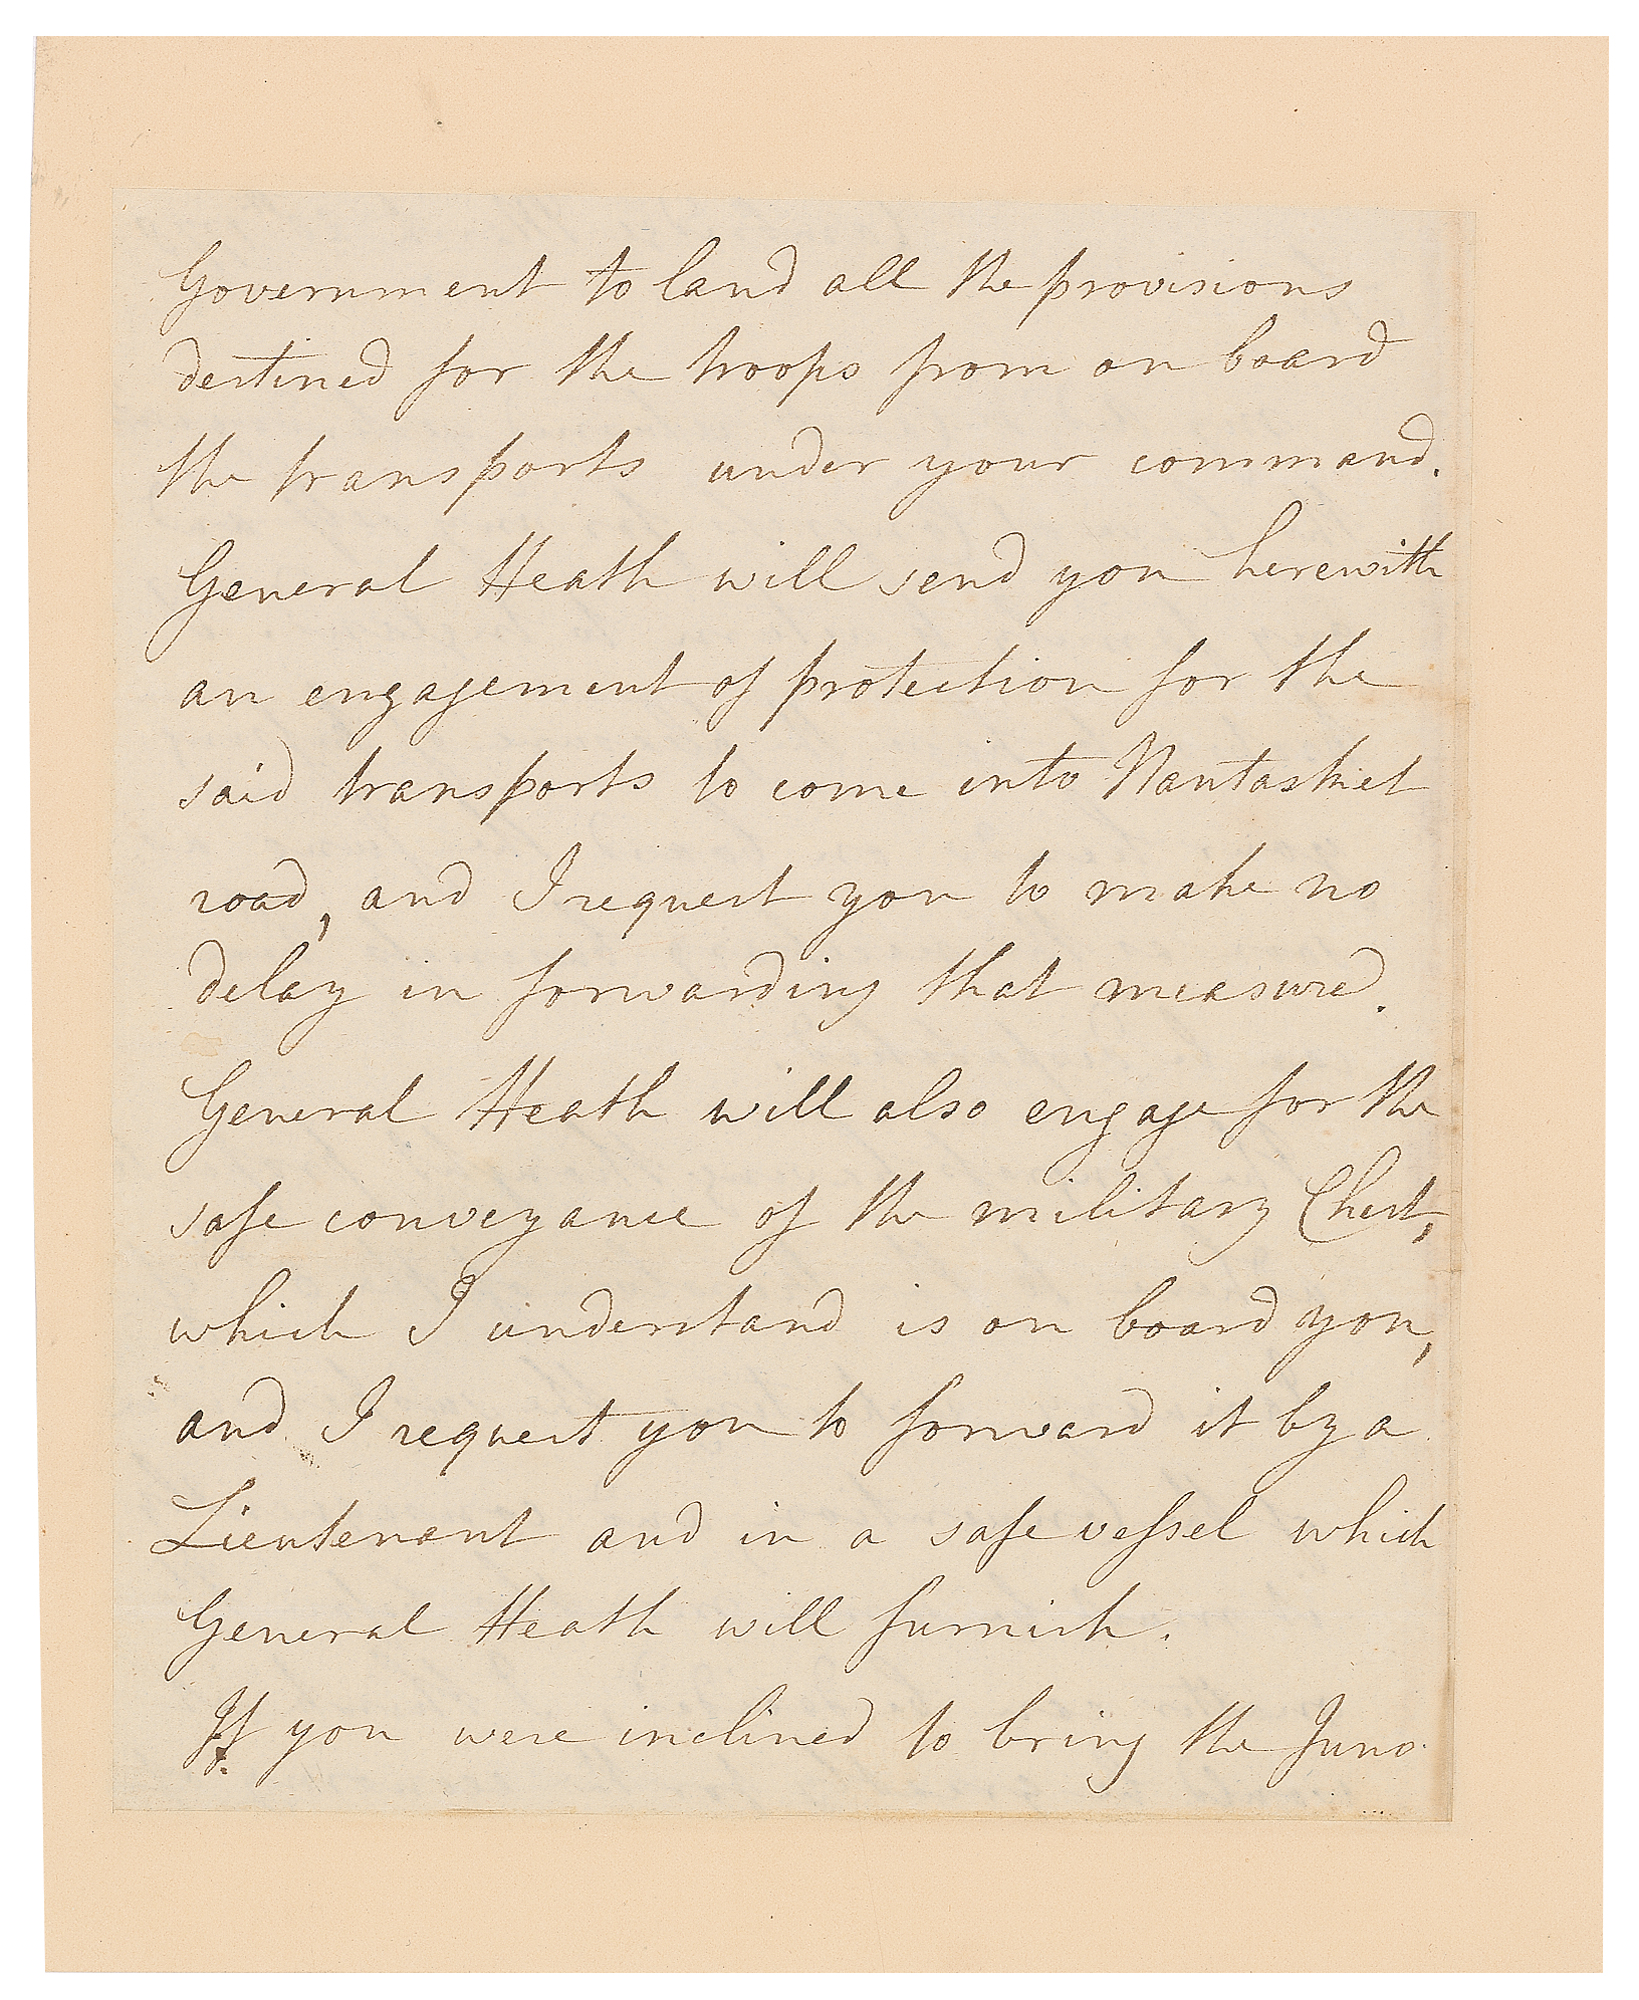 Government to land all the provisions
destined for the troops from on board
the transports under your command.
General Heath will send you herewith
an engagement of protection for the
said transports to come into Nantasket
road, and I request you to make no
delay in forwarding that measure.
General Heath will also engage for the
safe conveyance of the military Chest,
which I understand is on board you,
and I request you to forward it by a
Lieutenant and in a safe veſsel which
General Heath will furnish.
If you were inclined to bring the Juno